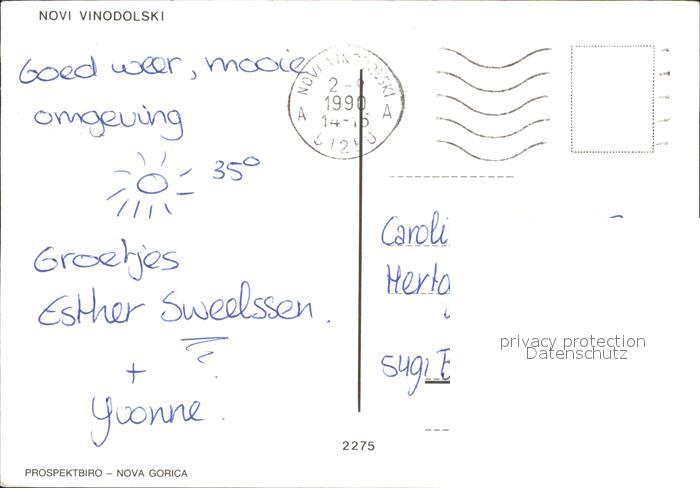 NOVI VINODOLSKI
Goed weer, mooie
omgeving
35°
Groetjes
Esther Sweelssen.
+
Yvonne.
NOVI VINODOLSKI
1990
A A
Caroli
Herto
privacy protection
Datenschutz
2275
PROSPEKTBIRO – NOVA GORICA